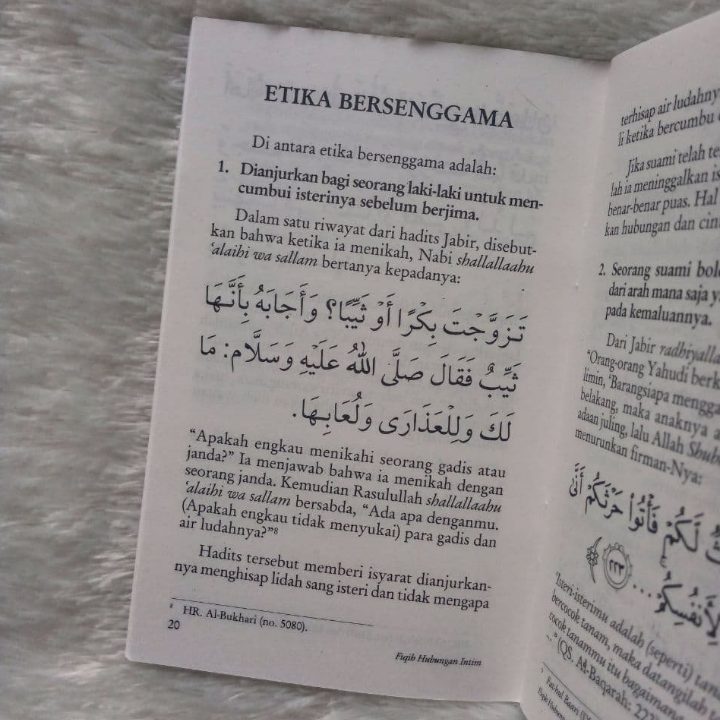 ETIKA BERSENGGAMA
Di antara etika bersenggama adalah:
1. Dianjurkan bagi seorang laki-laki untuk men-
cumbui isterinya sebelum berjima.
Dalam satu riwayat dari hadits Jabir, disebut-
kan bahwa ketika ia menikah, Nabi shallallaahu
‘alaihi wa sallam bertanya kepadanya:
تَزَوَّجْتَ بِكْرًا أَوْ ثَيِّبًا؟ وَأَجَابَهُ بِأَنَّهَا
ثَيِّبٌ فَقَالَ صَلَّى اللهُ عَلَيْهِ وَسَلَّامَ: مَا
لَكَ وَلِلْعَذَارَى وَلُعَابِهَا.
“Apakah engkau menikahi seorang gadis atau
janda?” Ia menjawab bahwa ia menikah dengan
seorang janda. Kemudian Rasulullah shallallaahu
‘alaihi wa sallam bersabda, “Ada apa denganmu.
(Apakah engkau tidak menyukai) para gadis dan
air ludahnya?”⁸
Hadits tersebut memberi isyarat dianjurkan-
nya menghisap lidah sang isteri dan tidak mengapa
⁸ HR. Al-Bukhari (no. 5080).
20
Fiqih Hubungan Intim
terhisap air ludahny
li ketika bercumbu
Jika suami telah
lah ia meninggalkan
benar-benar puas. Hal
kan hubungan dan
2. Seorang suami
dari arah mana saja
pada kemaluannya.
Dari Jabir
“Orang-orang Yahudi
limin, ‘Barangsiapa
belakang, maka anaknya
adaan juling, lalu Allah
menurunkan firman-Nya:
لَكُمْ فَأْتُوا حَرْثَكُمْ أَنَّى
لِأَنْفُسِكُمْ ... ٢٢٣
‘Isteri-isterimu adalah (seperti)
bercocok tanam, maka datangilah
cocok tanammu itu bagaiman
...’” (QS. Al-Baqarah: